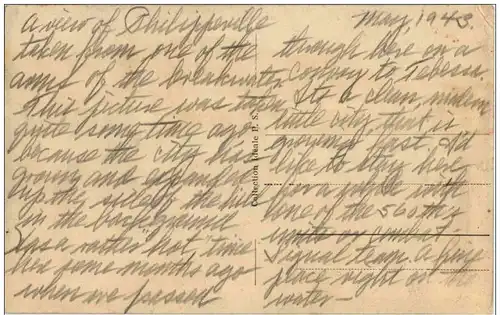 a view of Philippeville
taken from one of the
arms of the breakwater.
This picture was taken
quite some time ago
because the city has
grown and expanded
up the side of the hill
in the background
Has a rather "hot" time
here some months ago
when we passed
May, 1943.
through here on a
convoy to Tebessa.
Its a clean, modern
little city, that is
growing fast. I'd
like to stay here
for a while with
one of the 560th
units or combat
signal team. A fine
place right on the
water —
Collection Idéale P. S.